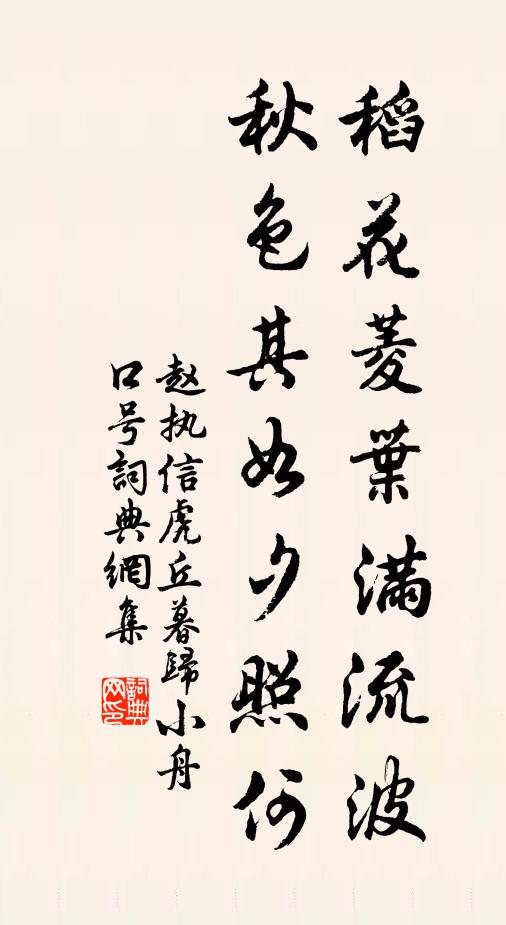 稻花菱葉滿流波
秋色其如夕照何
赵执信虎丘暮歸小舟
口号詞典網集
詞典网印